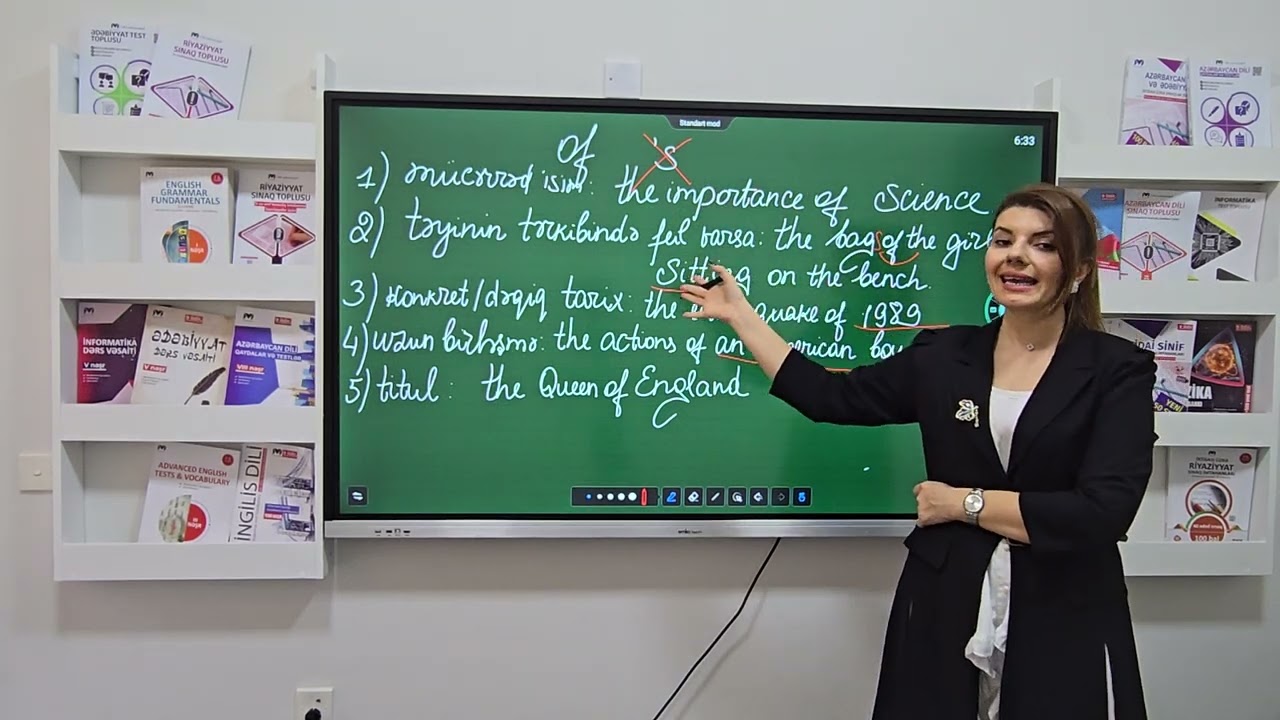 ƏDƏBİYYAT TEST TOPLUSU
RİYAZİYYAT SINAQ TOPLUSU
ENGLISH GRAMMAR FUNDAMENTALS
RİYAZİYYAT SINAQ TOPLUSU
İNFORMATİKA DƏRS VƏSAİTİ
V nəşr
ƏDƏBİYYAT DƏRS VƏSAİTİ
V nəşr
AZƏRBAYCAN DİLİ QAYDALAR VƏ TESTLƏR
VIII nəşr
ADVANCED ENGLISH TESTS & VOCABULARY
İNGİLİS DİLİ
Standart mod
6:33
Of 's
1) mücərrəd isim: the importance of Science
2) təyinin tərkibində feil varsa: the bags of the girl
sitting on the bench.
3) konkret/dəqiq tarix: the of 1989
4) uzun birləşmə: the actions of an
5) titul: the Queen of England
AZƏRBAYCAN DİLİ
AZƏRBAYCAN DİLİ
RİYAZİYYAT SINAQ TOPLUSU
İNFORMATİKA
SINIF
YENİ
RİYAZİYYAT
100 bal